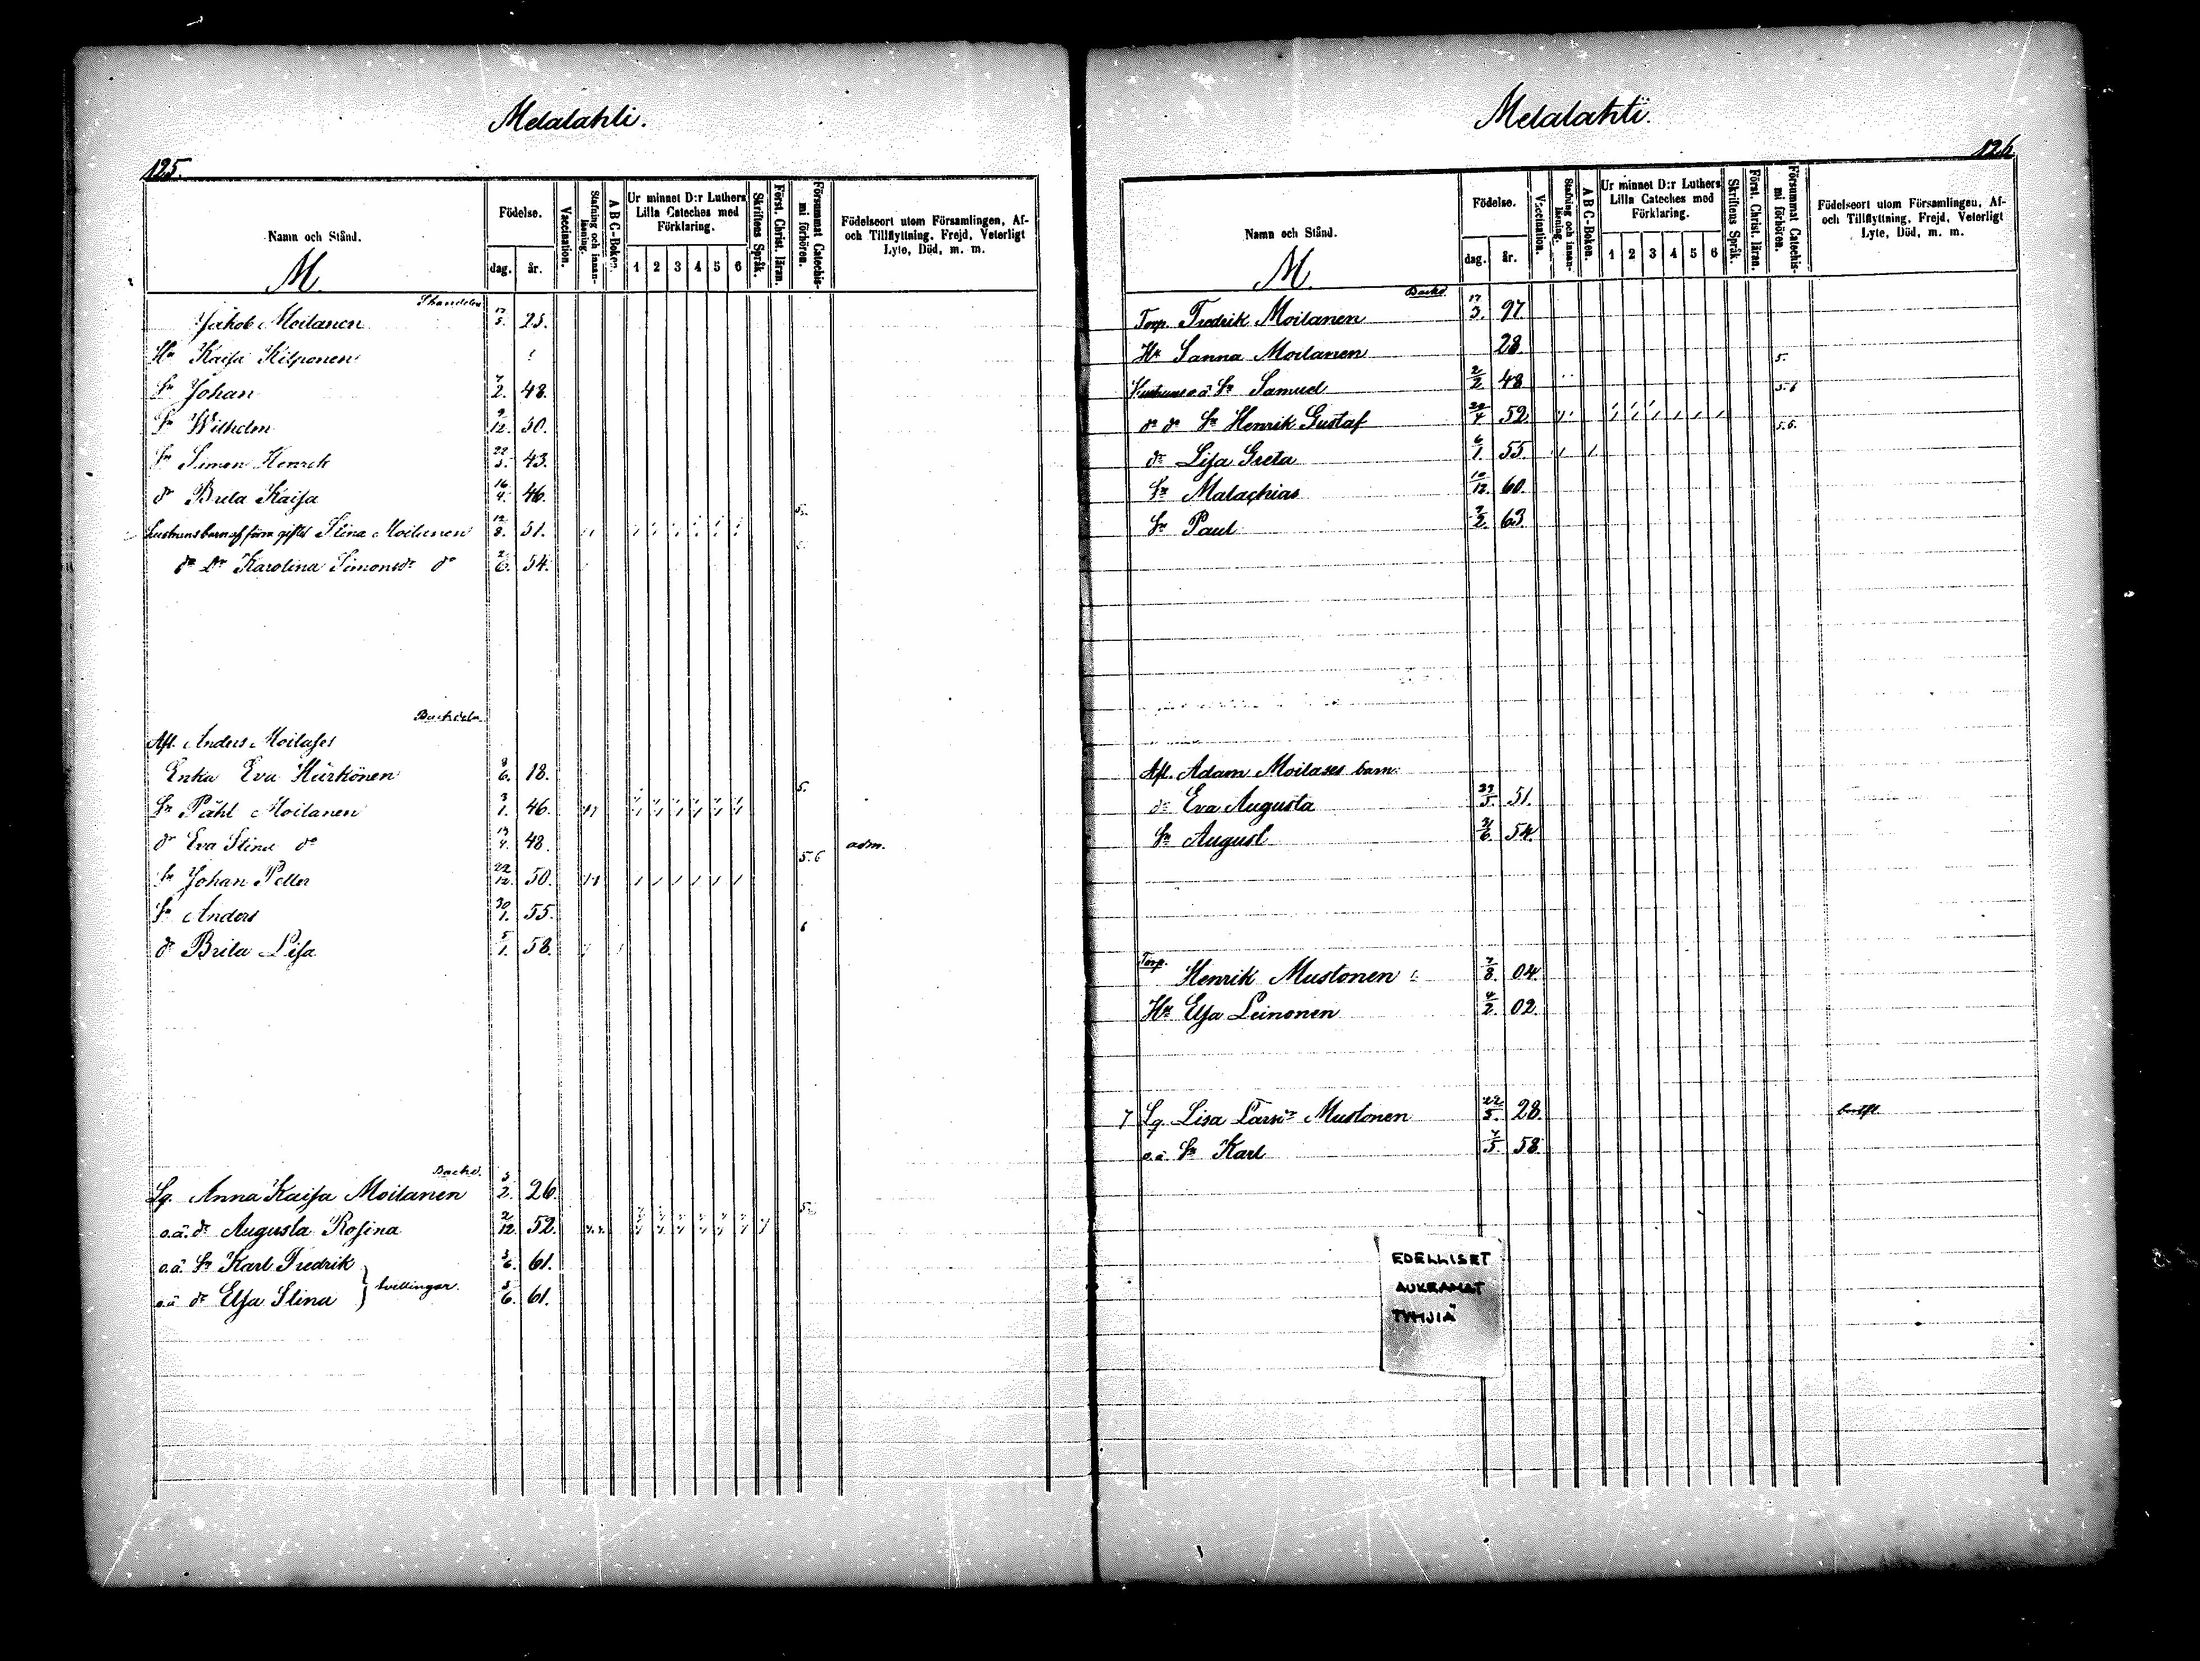 Melalahti.
125.
Namn och Stånd.
Födelse.
dag.
år.
Vaccination.
Stafning och innan-läsning.
A B C-Boken.
Ur minnet D:r Luthers Lilla Cateches med Förklaring.
1 2 3 4 5 6
Skriftens Språk.
Först. Christ. läran.
Försummat Catechis-mi förhören.
Födelseort utom Församlingen, Af-
och Tillflyttning, Frejd, Veterligt
Lyte, Död, m. m.
M.
Jakob Moilanen 17/5. 25.
Hu Kaisa Kilponen
Sn Johan 7/2. 48.
Sn Wilhelm 9/12. 50.
Sn Simon Henrik 22/5. 43.
dr Brita Kaisa 16/4. 46.
Stina Moilanen 12/8. 51.
do Dr Karolina Simonsdr do 2/6. 54.
Afl. Anders Moilases
Enka Eva Härkönen 8/6. 18. 5.
Sn Påhl Moilanen 3/1. 46.
dr Eva Stina do 13/4. 48. adm.
5.6
Sn Johan Petter 22/12. 50.
Sn Anders 30/1. 55.
6
dr Brita Lisa 5/1. 58.
Backd.
Lg. Anna Kaisa Moilanen 3/2. 26
o.ä. dr Augusta Rosina 2/12. 52.
o.ä. Sn Karl Fredrik 3/6. 61.
tvillingar.
o.ä dr Elsa Stina 3/6. 61.
Melalahti.
126
Namn och Stånd.
Födelse.
dag.
år.
Vaccination.
Stafning och innan-läsning.
A B C-Boken.
Ur minnet D:r Luthers Lilla Cateches med Förklaring.
1 2 3 4 5 6
Skriftens Språk.
Först. Christ. läran.
Försummat Catechis-mi förhören.
Födelseort utom Församlingen, Af-
och Tillflyttning, Frejd, Veterligt
Lyte, Död, m. m.
M.
Backd.
Torp. Fredrik Moilanen 17/3. 97
Hu Sanna Moilanen 28. 5.
Hustruns o.ä Sn Samuel 2/2. 48 5.6
do do Sn Henrik Gustaf 22/4 52. 5.6.
dr Lisa Greta 6/1. 55.
Sn Malachias 10/12. 60.
Sn Paul 2/2. 63.
Afl. Adam Moilases barn:
dr Eva Augusta 23/5. 51.
Sn August 21/6. 54.
Torp.
Henrik Mustonen 7/8. 04.
Hu Elsa Leinonen 4/2. 02.
7 Lg. Lisa Larsdr Mustonen 22/5. 28.
o.ä. Sn Karl 7/5 58.
EDELLISET
AUKEAMAT
TYHJIÄ